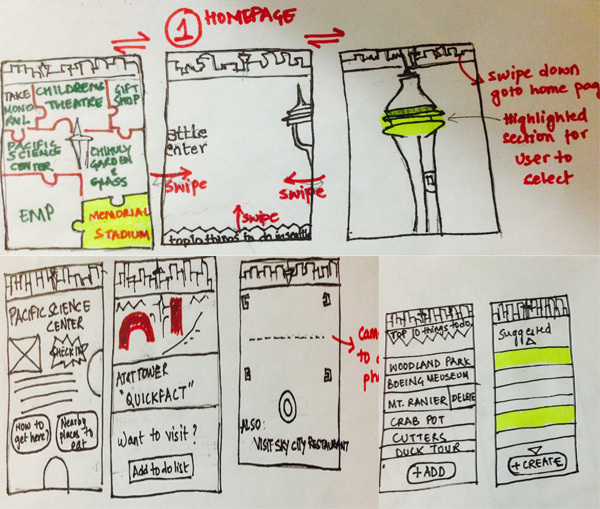 1 HOMEPAGE
TAKE
MONO
RAIL
CHILDRENS
THEATRE
GIFT
SHOP
PACIFIC
SCIENCE
CENTER
CHIHULY
GARDEN
&
GLASS
EMP
MEMORIAL
STADIUM
attle
enter
swipe
swipe
swipe
top 10 things to do in seattle
swipe down
goto home pag
Highlighted
section for
user to
select
PACIFIC SCIENCE
CENTER
CHECK IN
How to
get here?
Nearby
places to
eat
AT&T TOWER
"QUICKFACT"
Want to visit?
Add to do list
Cam
to
ph
ALSO:
VISIT SKY CITY RESTAURANT
TOP 10 things to do
WOODLAND PARK
BOEING MEUSEUM
MT. RANIER
DELETE
CRAB POT
CUTTERS
DUCK TOUR
+ ADD
Suggested
+ CREATE